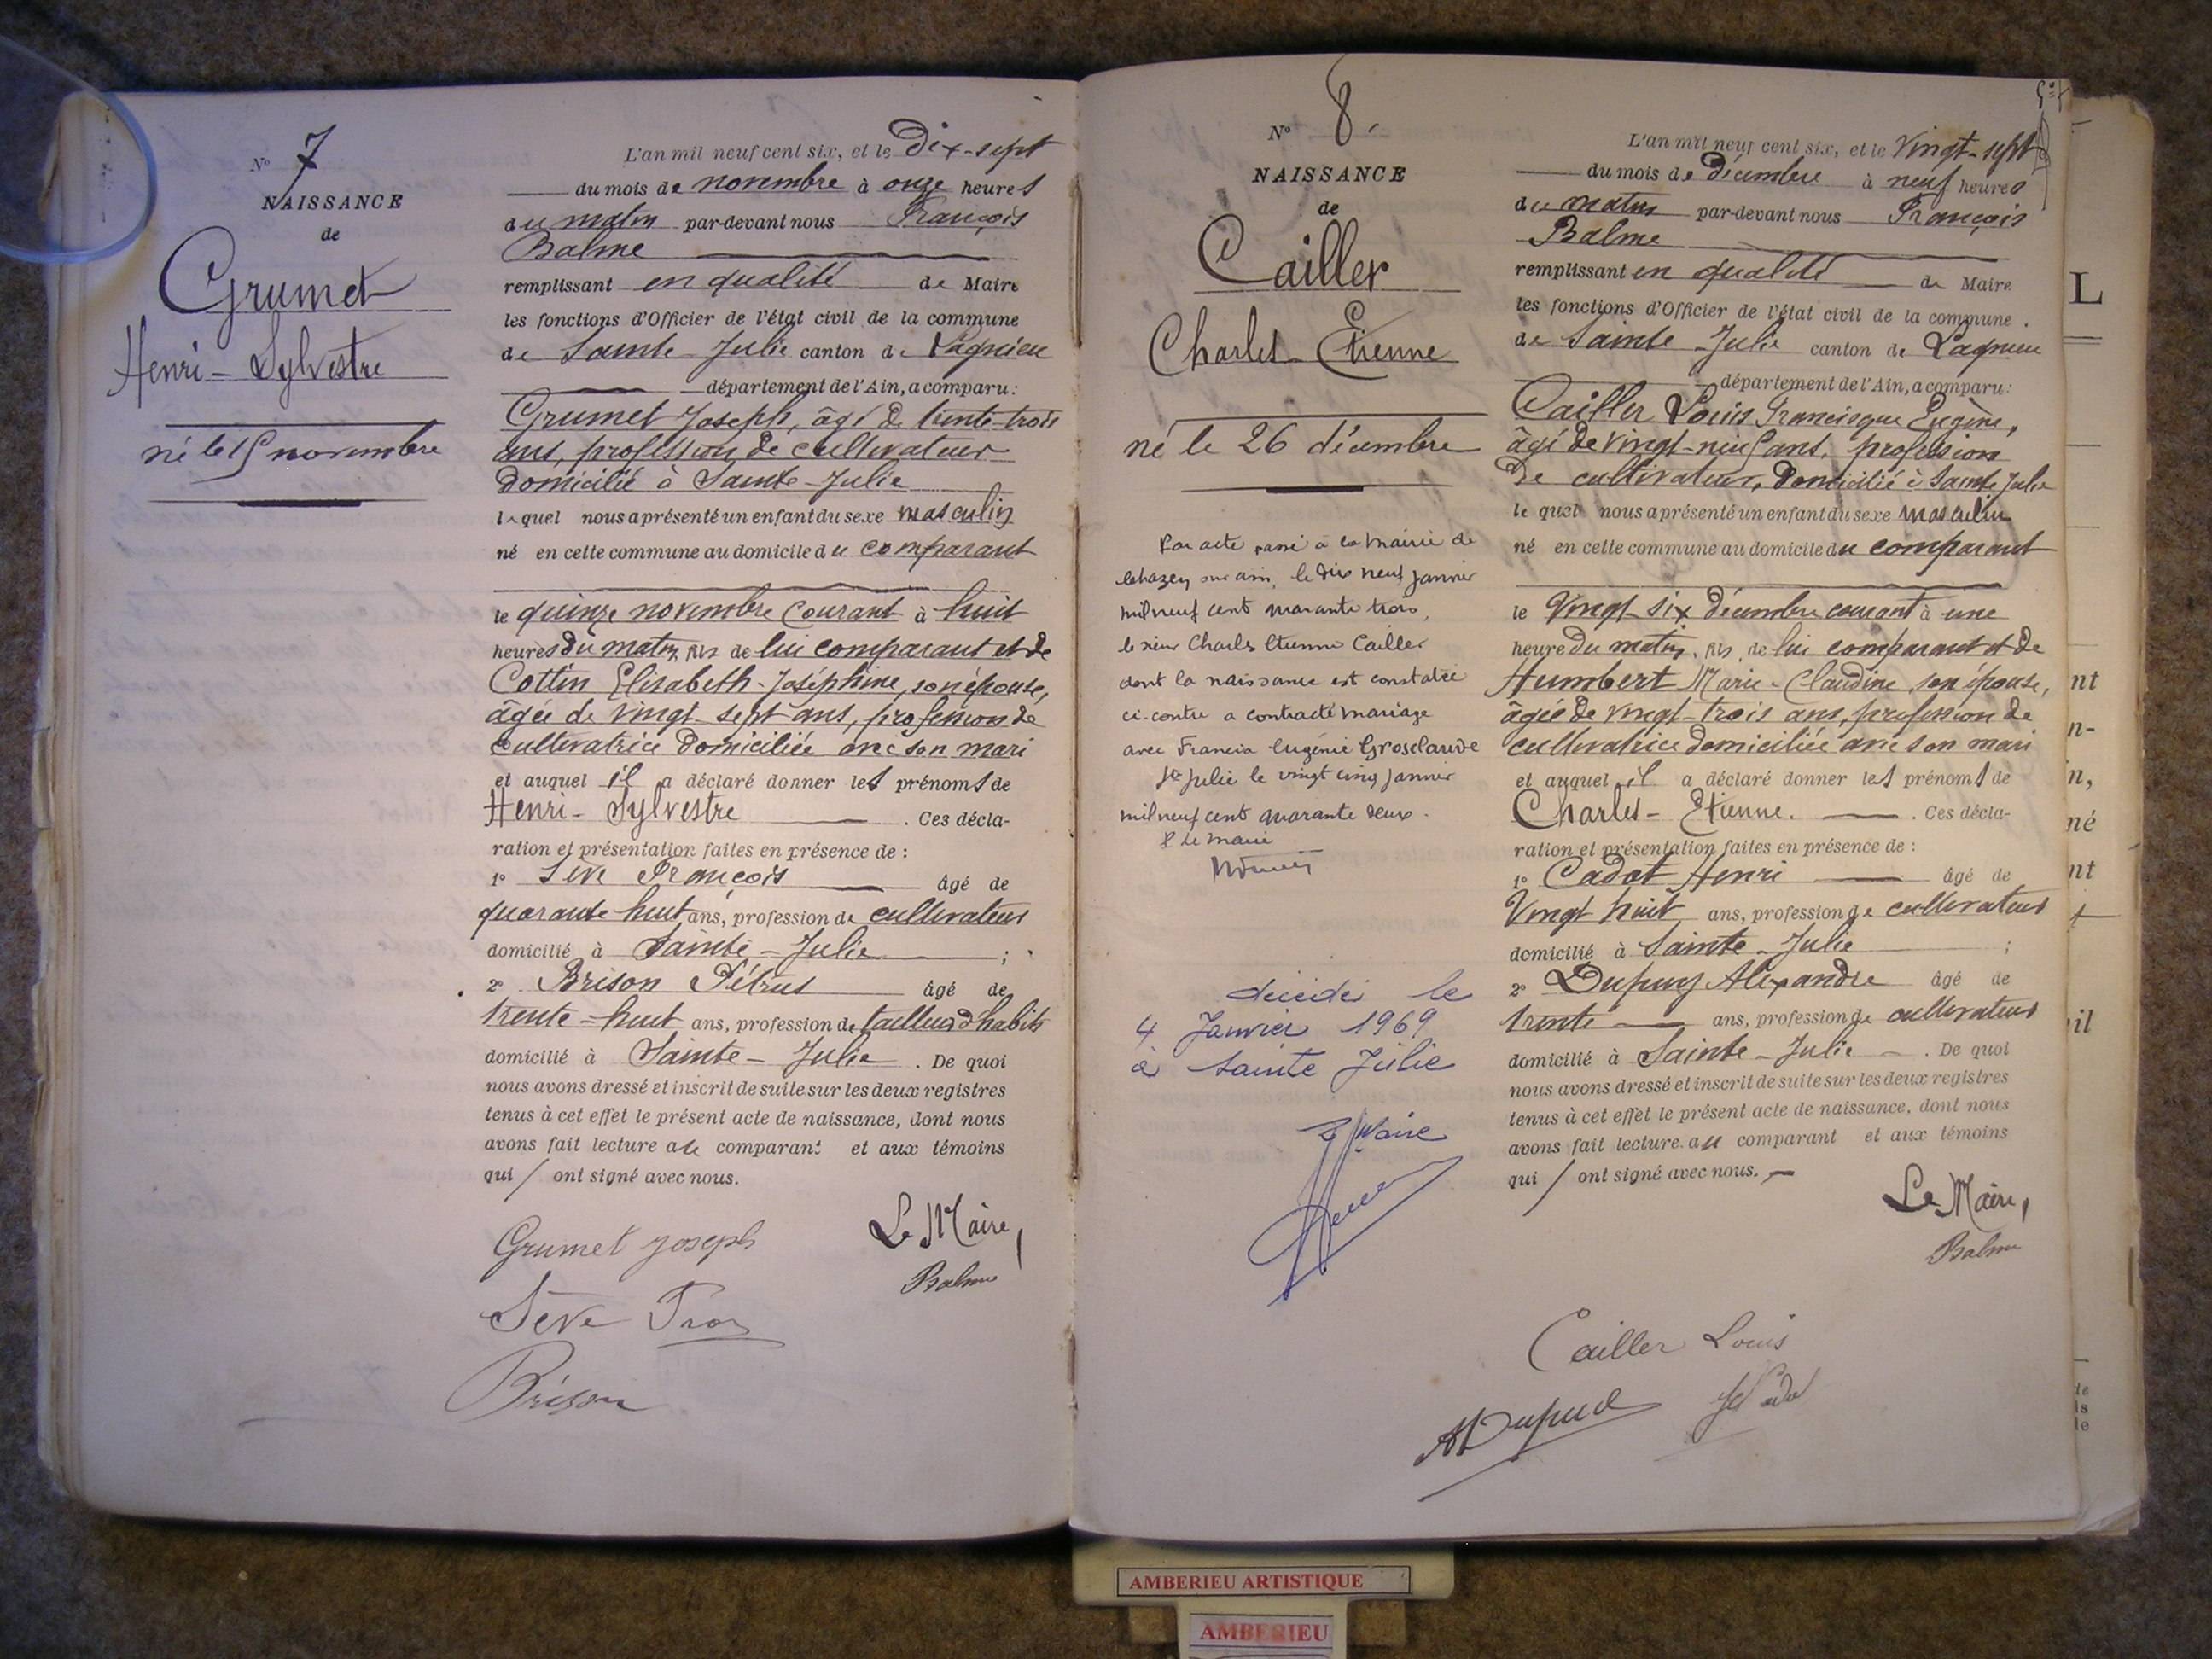 N° 7
NAISSANCE
de
Grumet
Henri-Sylvestre
né le 15 novembre
L'an mil neuf cent six, et le Dix-sept
du mois de novembre à onze heures
du matin par-devant nous François
Balme
remplissant en qualité de Maire
les fonctions d'Officier de l'état civil de la commune
de Sainte-Julie canton de Lagnieu
département de l'Ain, a comparu:
Grumet Joseph, âgé de trente-trois
ans, profession de cultivateur
domicilié à Sainte-Julie
lequel nous a présenté un enfant du sexe masculin
né en cette commune au domicile du comparant
le quinze novembre courant à huit
heures du matin, fils de lui comparant et de
Cottin Elisabeth-Joséphine, son épouse,
âgée de vingt-sept ans, profession de
cultivatrice domiciliée avec son mari
et auquel il a déclaré donner les prénoms de
Henri-Sylvestre . Ces décla-
ration et présentation faites en présence de :
1° Sève François âgé de
quarante huit ans, profession de cultivateur
domicilié à Sainte-Julie ;
2° Brison Pétrus âgé de
trente-huit ans, profession de tailleur d'habits
domicilié à Sainte-Julie . De quoi
nous avons dressé et inscrit de suite sur les deux registres
tenus à cet effet le présent acte de naissance, dont nous
avons fait lecture au comparant et aux témoins
qui / ont signé avec nous.
Le Maire,
Grumet Joseph
Balme
Sève
Brison
N° 8.
NAISSANCE
de
Cailler
Charles-Etienne
né le 26 décembre
Par acte passé à la mairie de
chazey sur ain, le dix neuf janvier
mil neuf cent quarante trois,
le sieur Charles Etienne Cailler
dont la naissance est constatée
ci-contre a contracté mariage
avec Francia Eugénie Grosclaude
Ste Julie le vingt cinq janvier
mil neuf cent quarante deux.
P. le maire
décédé le
4 Janvier 1969
à Sainte Julie
Le Maire
L'an mil neuf cent six, et le Vingt-sept
du mois de décembre à neuf heures
du matin par-devant nous François
Balme
remplissant en qualité de Maire
les fonctions d'Officier de l'état civil de la commune
de Sainte-Julie canton de Lagnieu
département de l'Ain, a comparu:
Cailler Louis Francisque Eugène,
âgé de vingt-neuf ans, profession
de cultivateur, domicilié à Sainte Julie
lequel nous a présenté un enfant du sexe masculin
né en cette commune au domicile du comparant
le vingt-six décembre courant à une
heure du matin, fils de lui comparant et de
Humbert Marie-Claudine son épouse,
âgée de vingt-trois ans, profession de
cultivatrice domiciliée avec son mari
et auquel il a déclaré donner les prénoms de
Charles-Etienne. . Ces décla-
ration et présentation faites en présence de :
1° Cadot Henri âgé de
Vingt huit ans, profession de cultivateur
domicilié à Sainte-Julie ;
2° Dupuy Alexandre âgé de
trente ans, profession de cultivateur
domicilié à Sainte-Julie . De quoi
nous avons dressé et inscrit de suite sur les deux registres
tenus à cet effet le présent acte de naissance, dont nous
avons fait lecture au comparant et aux témoins
qui / ont signé avec nous.
Le Maire,
Balme
Cailler Louis
L
nt
n-
n,
né
nt
il
AMBERIEU ARTISTIQUE
AMBERIEU